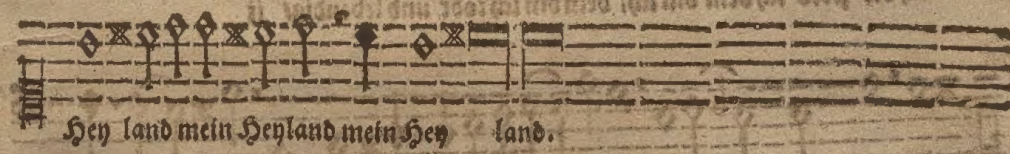 Hey land mein Heyland mein Hey land.